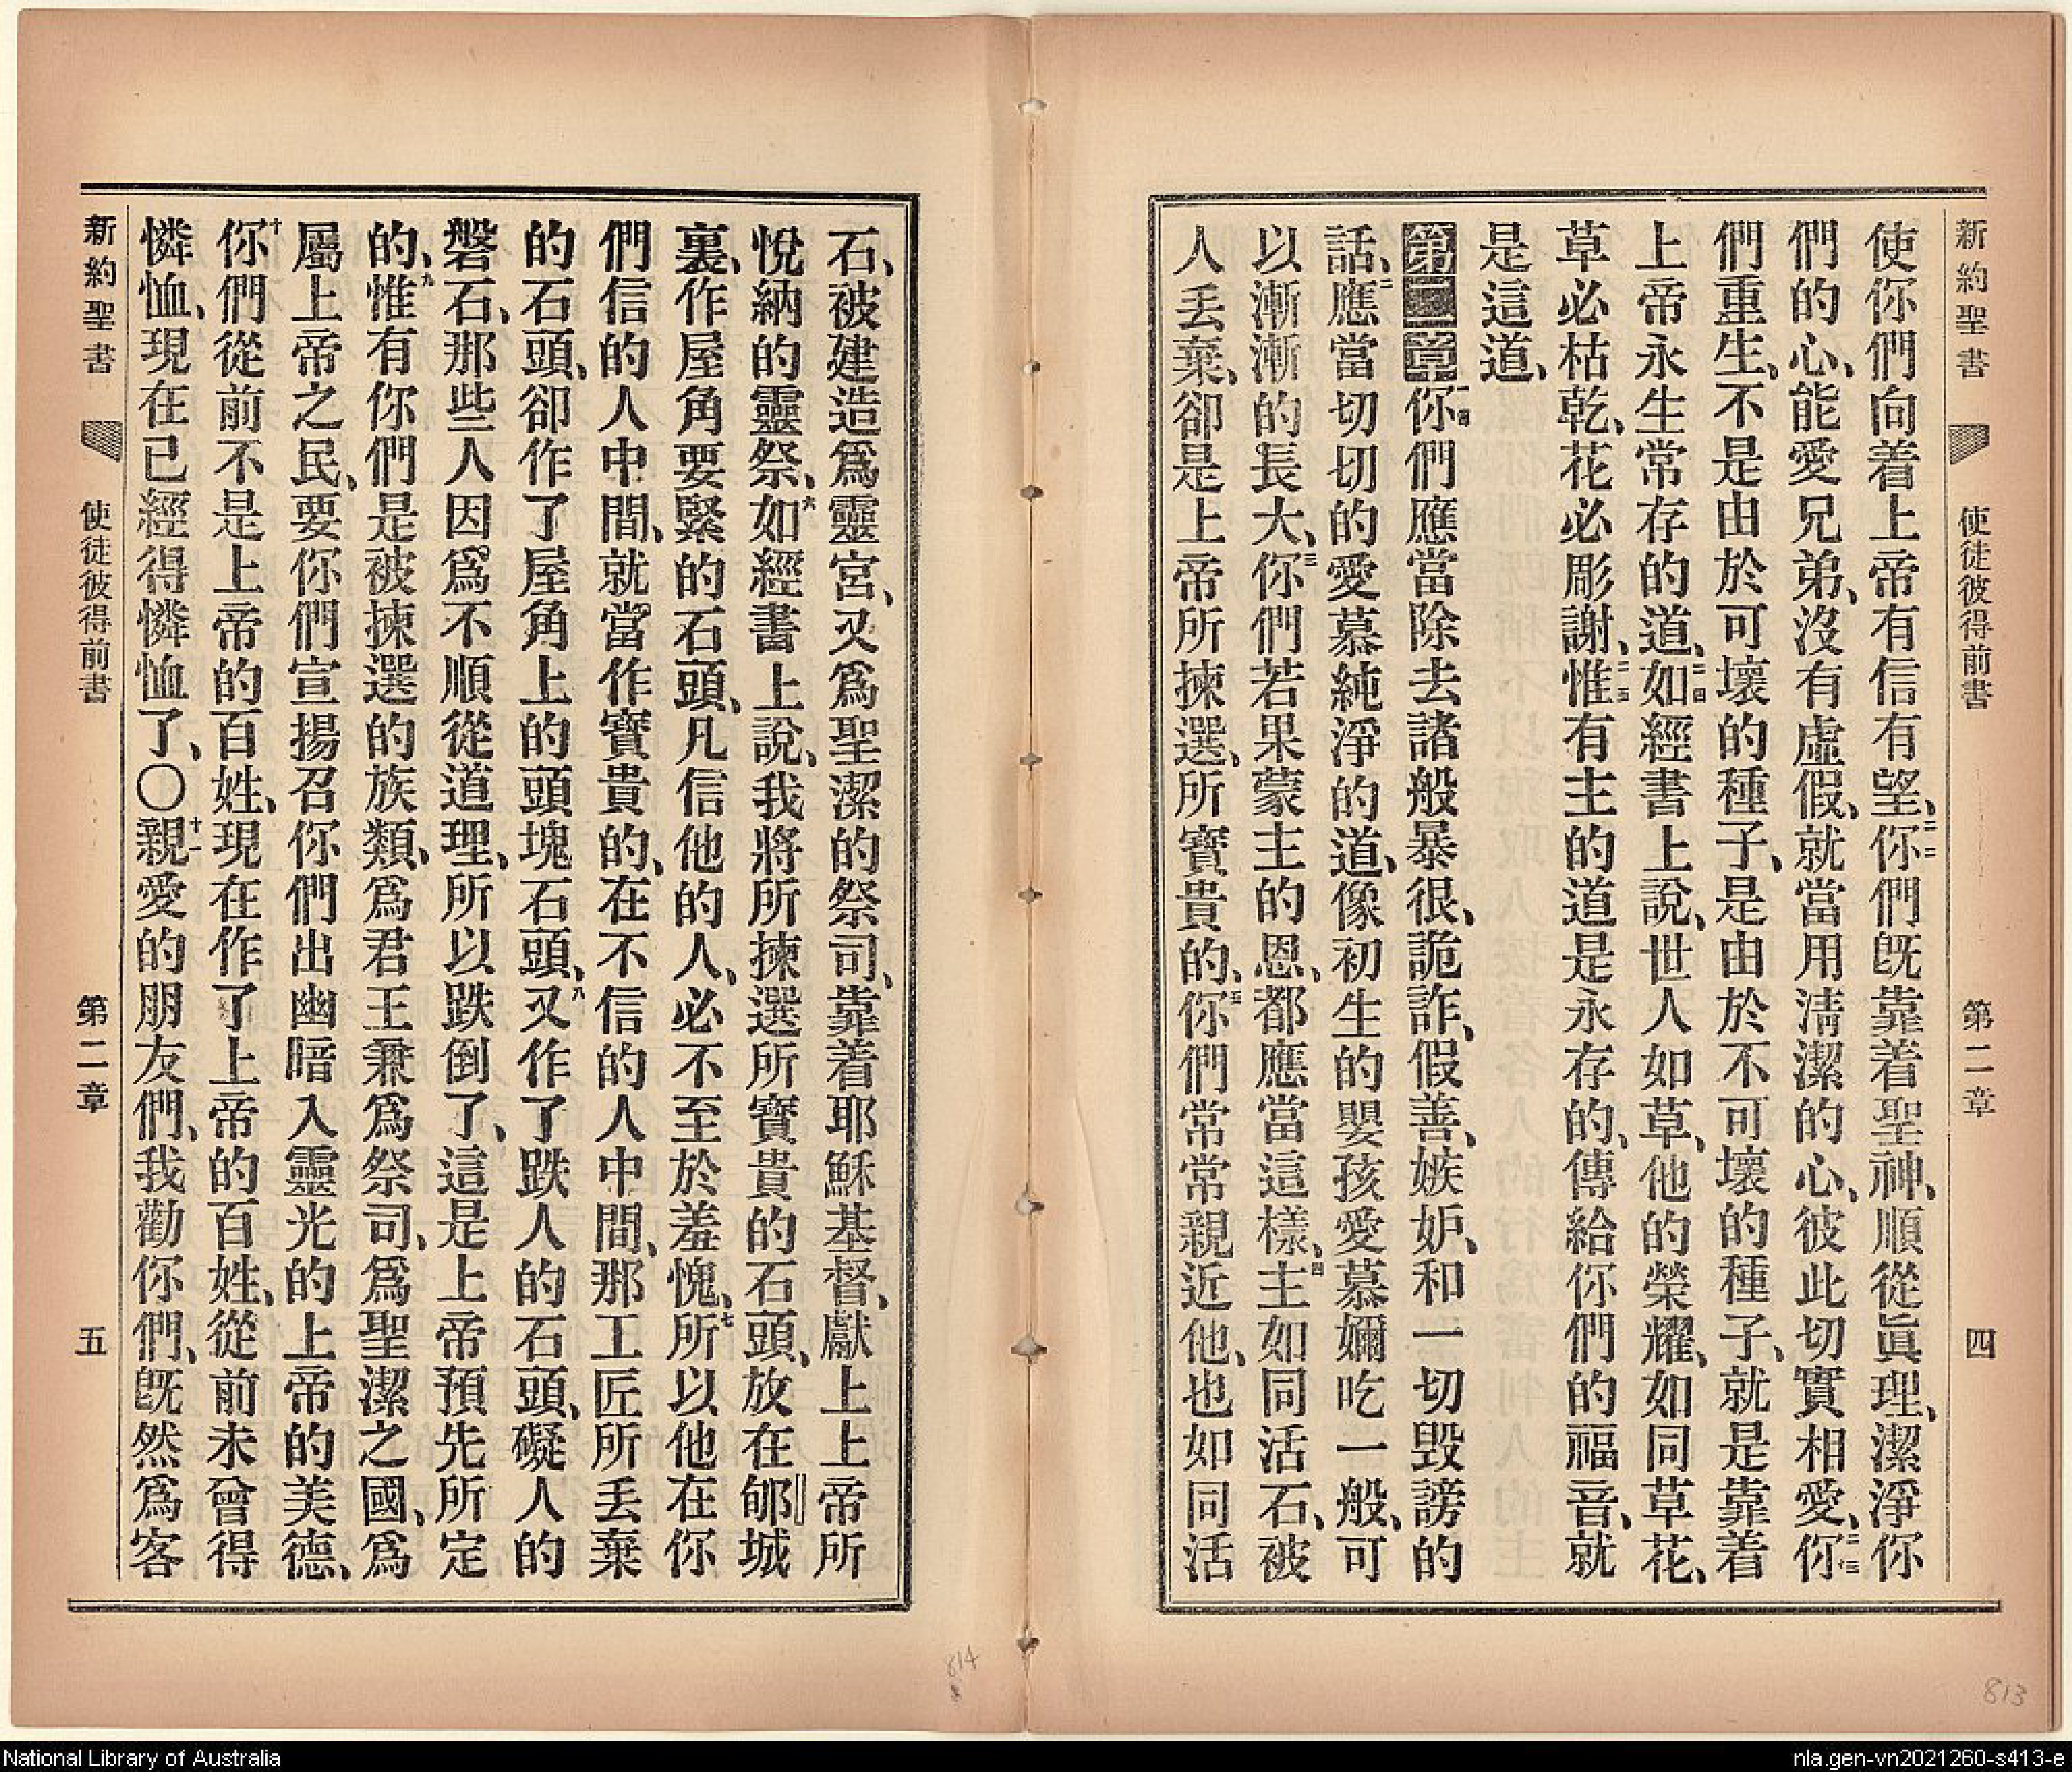 新約聖書 使徒彼得前書 第二章 四
使你們向着上帝有信有望、二二你們旣靠着聖神、順從眞理、潔淨你
們的心、能愛兄弟、沒有虛假、就當用淸潔的心、彼此切實相愛、二三你
們重生、不是由於可壞的種子、是由於不可壞的種子、就是靠着
上帝永生常存的道、二四如經書上說、世人如草、他的榮耀、如同草花、
草必枯乾、花必彫謝、二五惟有主的道是永存的、傳給你們的福音、就
是這道、
第二章一節你們應當除去諸般暴很、詭詐、假善、嫉妒、和一切毀謗的
話、二應當切切的愛慕純淨的道、像初生的嬰孩愛慕嬭吃一般、可
以漸漸的長大、三你們若果蒙主的恩、都應當這樣、四主如同活石、被
人丢棄、卻是上帝所揀選、所寶貴的、五你們常常親近他、也如同活
石、被建造爲靈宮、又爲聖潔的祭司、靠着耶穌基督、獻上上帝所
悅納的靈祭、六如經書上說、我將所揀選所寶貴的石頭、放在郇城
裏、作屋角要緊的石頭、凡信他的人、必不至於羞愧、七所以他在你
們信的人中間、就當作寶貴的、在不信的人中間、那工匠所丢棄
的石頭、卻作了屋角上的頭塊石頭、八又作了跌人的石頭、礙人的
磐石、那些人因爲不順從道理、所以跌倒了、這是上帝預先所定
的、九惟有你們是被揀選的族類、爲君王兼爲祭司、爲聖潔之國、爲
屬上帝之民、要你們宣揚召你們出幽暗入靈光的上帝的美德、
十你們從前不是上帝的百姓、現在作了上帝的百姓、從前未曾得
憐恤、現在已經得憐恤了、〇十一親愛的朋友們、我勸你們、旣然爲客
新約聖書 使徒彼得前書 第二章 五
814
813
National Library of Australia
nla.gen-vn2021260-s413-e